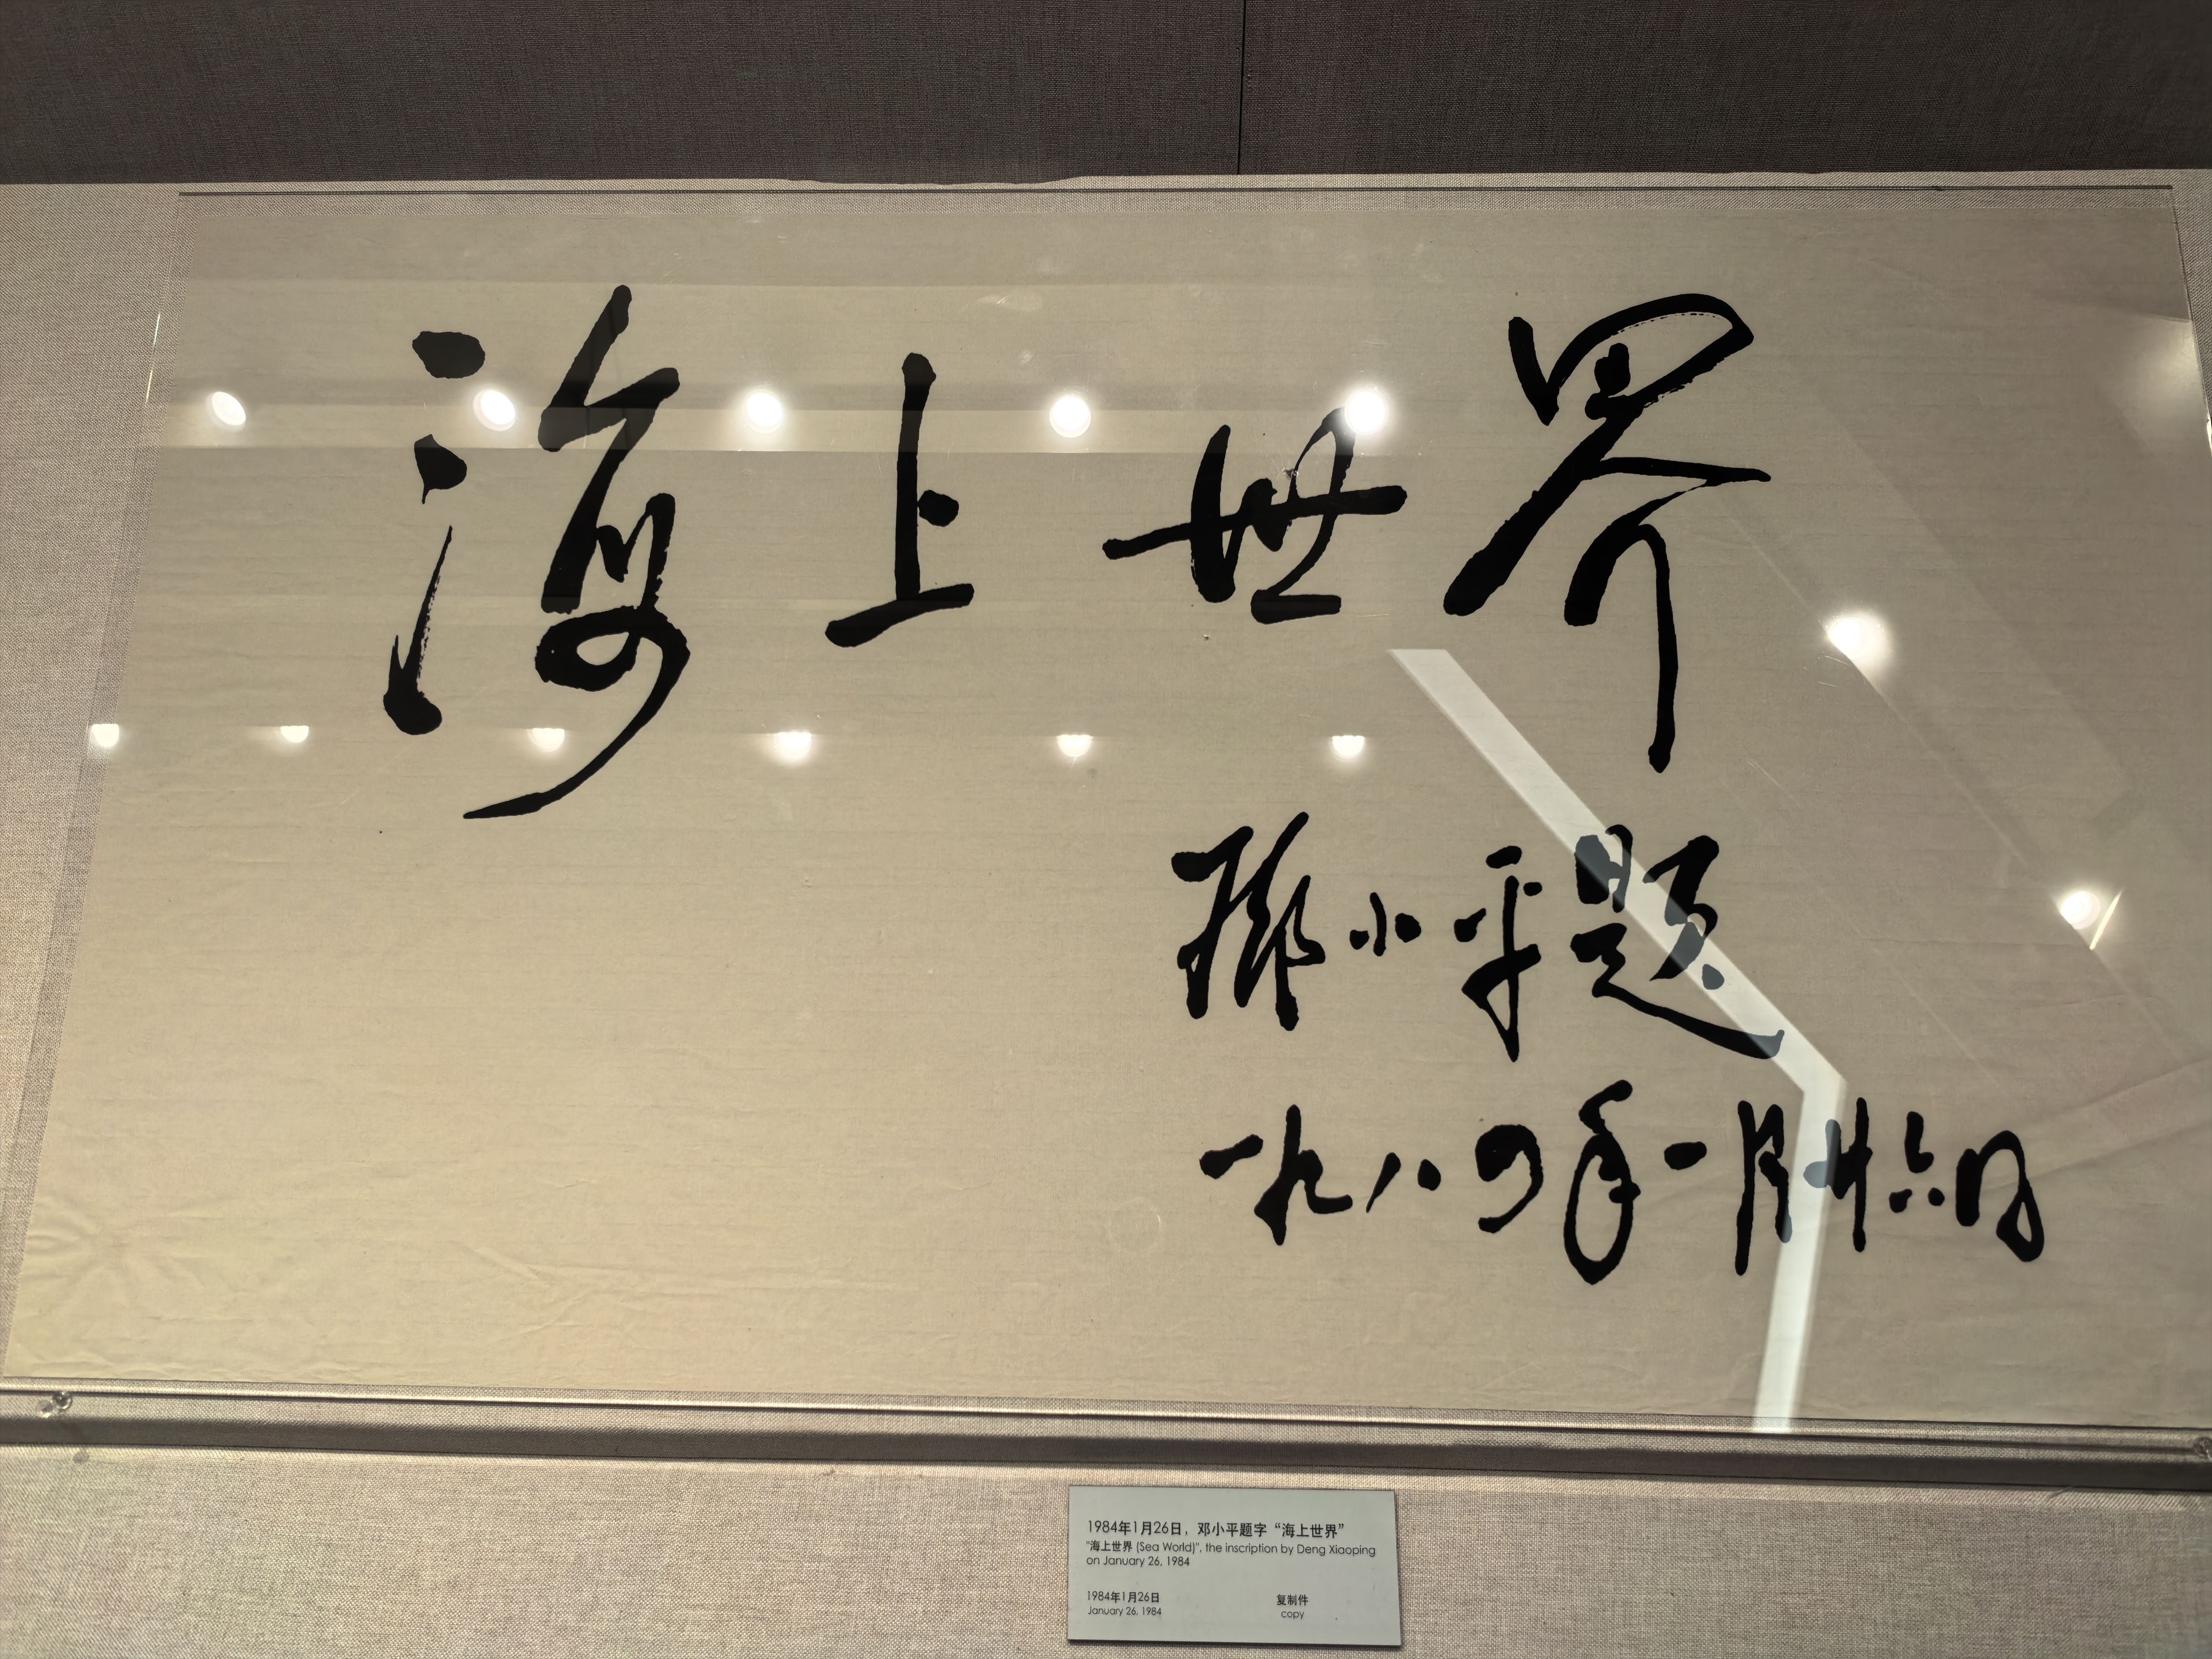 海上世界
邓小平题
一九八四年一月廿六日
1984年1月26日，邓小平题字“海上世界”
"海上世界 (Sea World)", the inscription by Deng Xiaoping
on January 26, 1984
1984年1月26日 复制件
January 26, 1984 copy